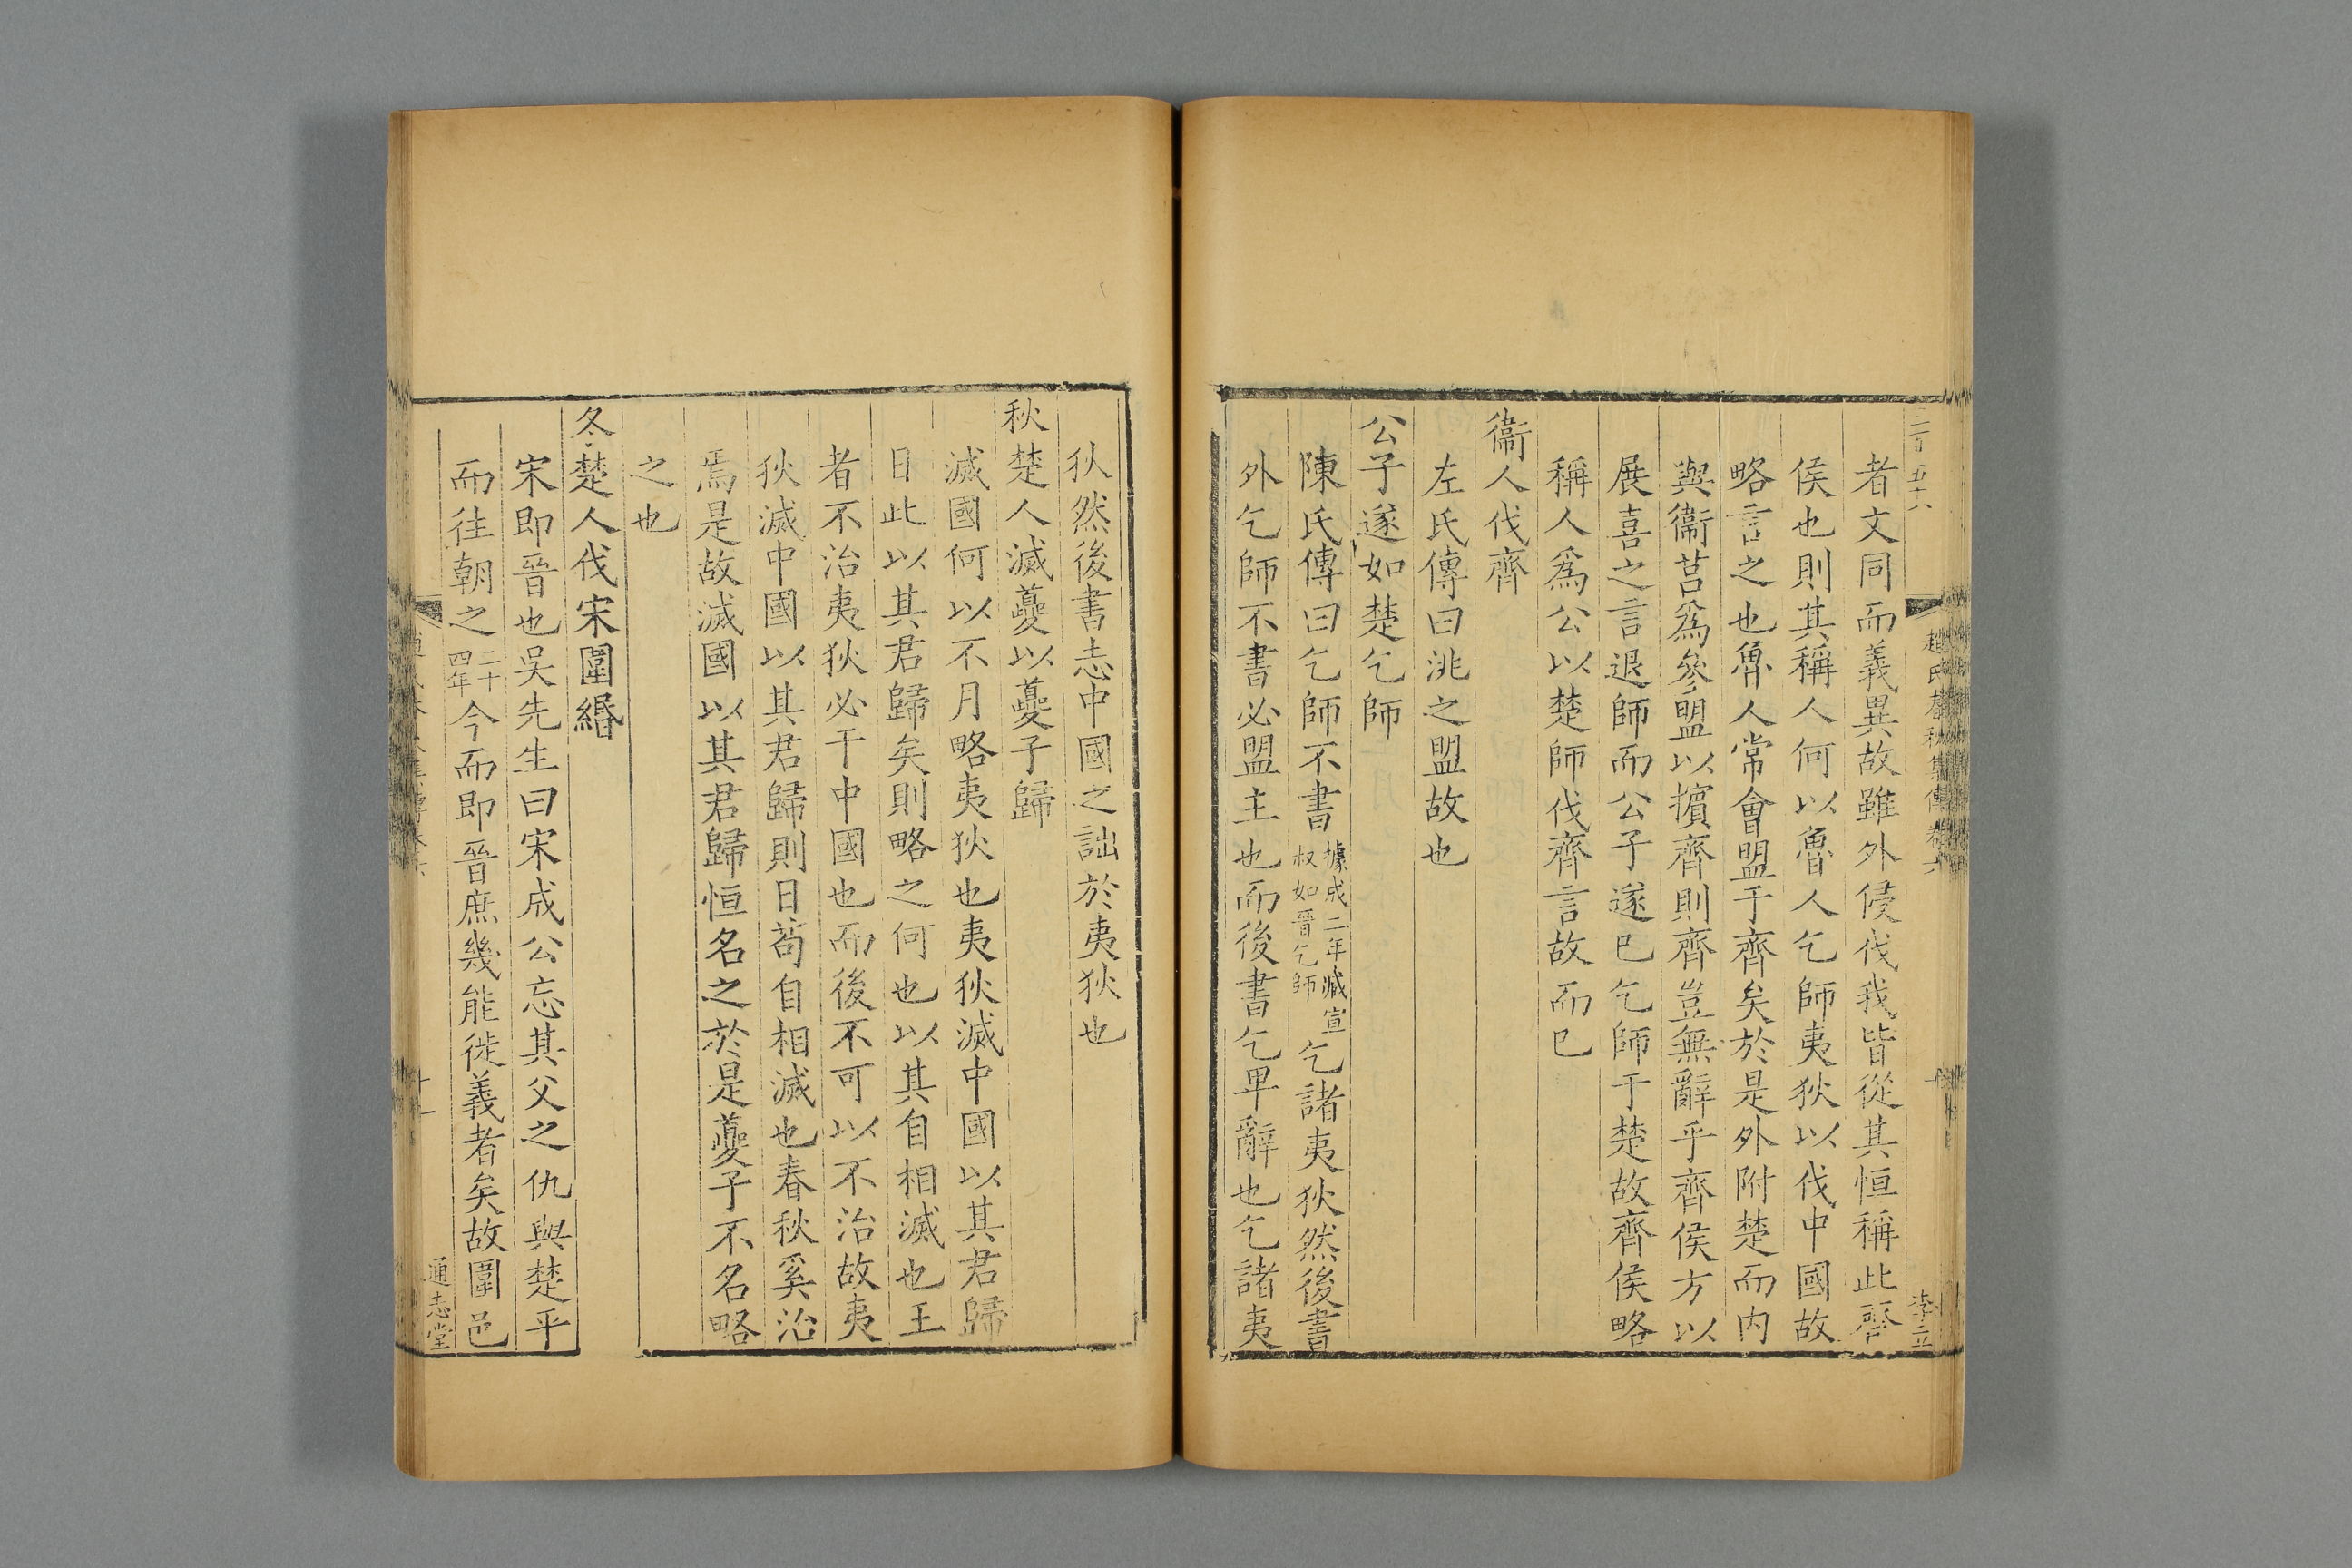 者文同而義異故雖外侵伐我皆從其恒稱此齊
侯也則其稱人何以魯人乞師夷狄以伐中國故
略言之也魯人常會盟于齊矣於是外附楚而内
與衞莒爲參盟以擯齊則齊豈無辭乎齊侯方以
展喜之言退師而公子遂巳乞師于楚故齊侯略
稱人爲公以楚師伐齊言故而巳
衞人伐齊
左氏傳曰洮之盟故也
公子遂如楚乞師
陳氏傳曰乞師不書據成二年臧宣叔如晉乞師乞諸夷狄然後書
外乞師不書必盟主也而後書乞卑辭也乞諸夷
狄然後書志中國之詘於夷狄也
秋楚人滅夔以夔子歸
滅國何以不月略夷狄也夷狄滅中國以其君歸
日此以其君歸矣則略之何也以其自相滅也王
者不治夷狄必干中國也而後不可以不治故夷
狄滅中國以其君歸則日苟自相滅也春秋奚治
焉是故滅國以其君歸恒名之於是夔子不名略
之也
冬楚人伐宋圍緡
宋即晉也吳先生曰宋成公忘其父之仇與楚平
而往朝之二十四年今而即晉庶幾能徙義者矣故圍邑
通志堂